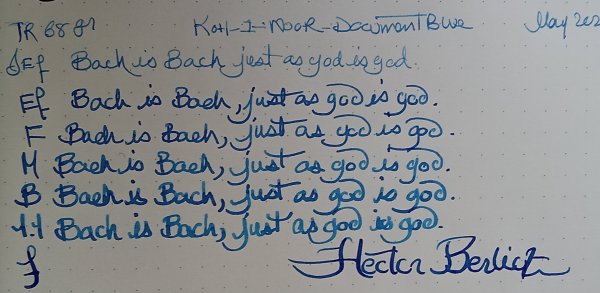 TR 68 gr Koh-I-Noor-Document Blue May 202
Ef Bach is Bach just as god is god.
Ef Bach is Bach, just as god is god.
F Bach is Bach, just as god is god.
M Bach is Bach, just as god is god.
B Bach is Bach, just as god is god.
1.1 Bach is Bach, just as god is god.
Hector Berlioz